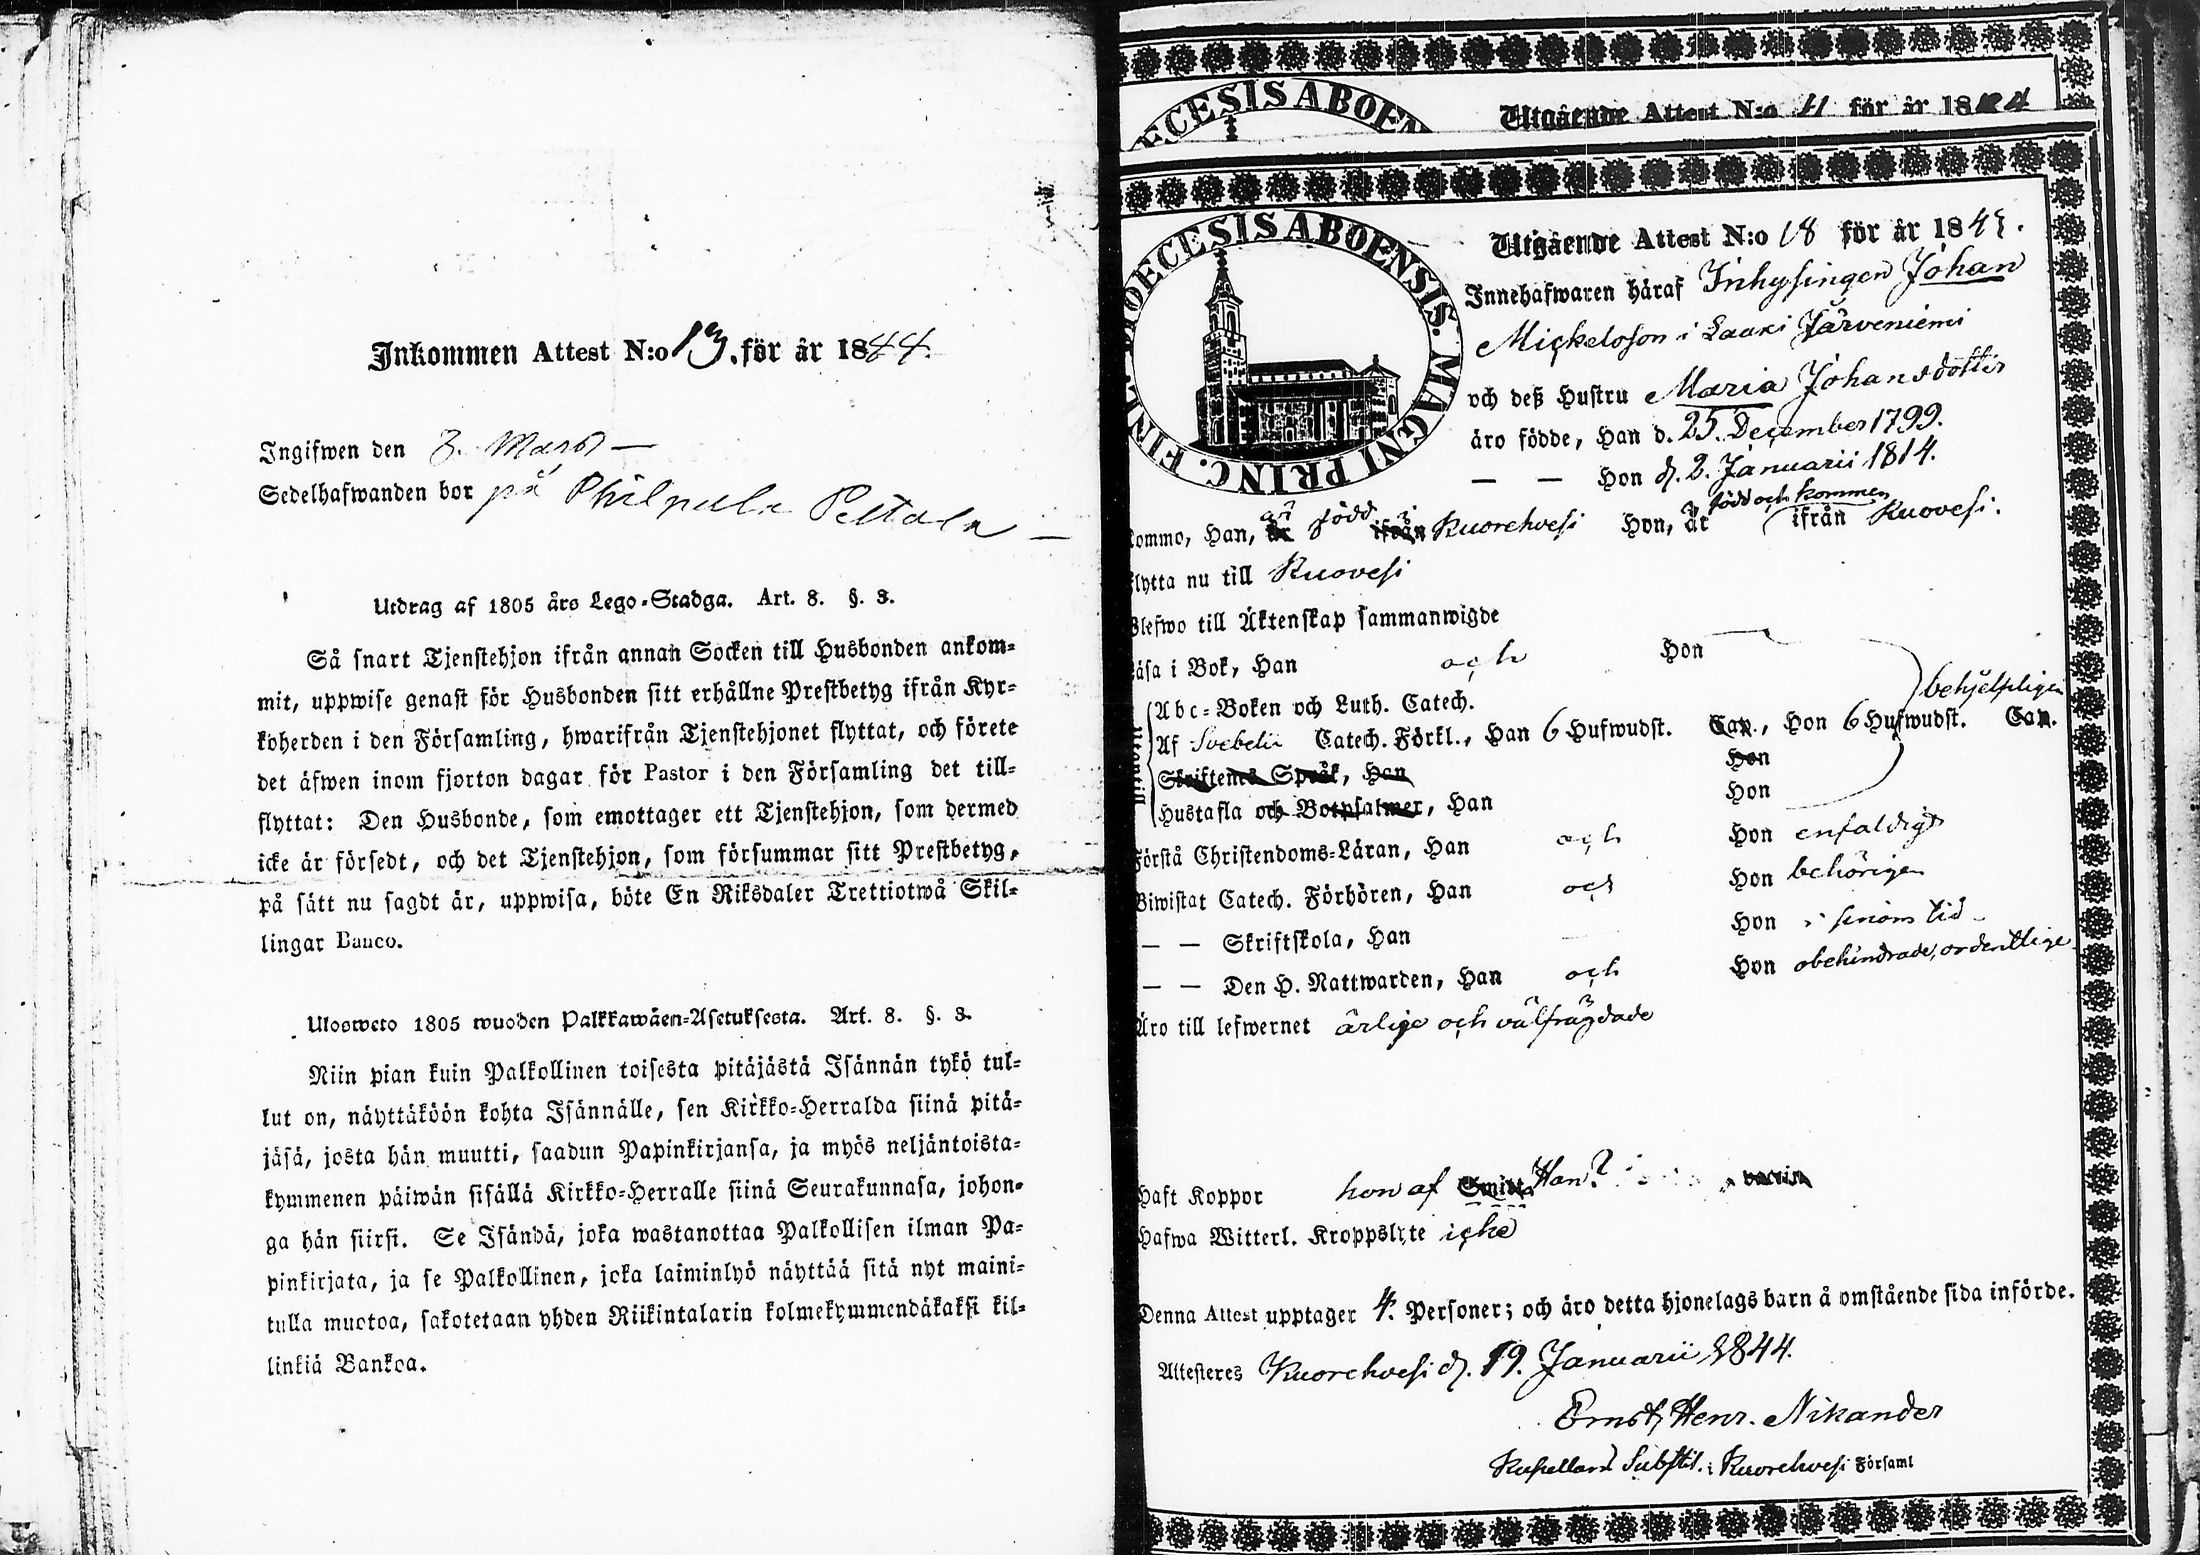 Inkommen Attest N:o 13. för år 1844.
Ingifwen den 3. Mars —
Sedelhafwanden bor på Philpula Peltola —
Utdrag af 1805 års Lego-Stadga. Art. 8. §. 3.
Så snart Tjenstehjon ifrån annan Socken till Husbonden ankom-
mit, uppwise genast för Husbonden sitt erhållne Prestbetyg ifrån Kyr-
koherden i den Församling, hwarifrån Tjenstehjonet flyttat, och förete
det äfwen inom fjorton dagar för Pastor i den Församling det till-
flyttat: Den Husbonde, som emottager ett Tjenstehjon, som dermed
icke är försedt, och det Tjenstehjon, som försummar sitt Prestbetyg,
på sätt nu sagdt är, uppwisa, böte En Riksdaler Trettiotwå Skil-
lingar Banco.
Ulosweto 1805 wuoden Palkkawäen-Asetuksesta. Art. 8. §. 3.
Niin pian kuin Palkollinen toisesta pitäjästä Isännän tykö tul-
lut on, näyttäköön kohta Isännälle, sen Kirkko-Herralda siinä pitä-
jäsä, josta hän muutti, saadun Papinkirjansa, ja myös neljäntoista-
kymmenen päiwän sisällä Kirkko-Herralle siinä Seurakunnasa, johon-
ga hän siirsi. Se Isändä, joka wastanottaa Palkollisen ilman Pa-
pinkirjata, ja se Palkollinen, joka laiminlyö näyttää sitä nyt maini-
tulla muotoa, sakotetaan yhden Riikintalarin kolmekymmendäkaksi kil-
linkiä Bankoa.
ECESIS ABOEN
Utgående Attest N:o 11 för år 1844
DIOECESIS ABOENSIS. MAGNI PRINC. FINL.
Utgående Attest N:o 18 för år 184
Innehafwaren häraf Inhysingen Johan
Mickelsson i Laari Järveniemi
och deß Hustru Maria Johansdotter
äro födde, Han d. 25. December 1799.
— — Hon d. 2. Januarii 1814.
född och kommen
Kommo, Han, är född i Kuorehvesi Hon, är ifrån Ruovesi.
Flytta nu till Ruovesi
Blefwo till Äktenskap sammanwigde
Läsa i Bok, Han och Hon
Abc-Boken och Luth. Catech. behjelpligen
Af Svebelii Catech. Förkl., Han 6 Hufwudst. Cap., Hon 6 Hufwudst. Cap.
Skriftenes Språk, Han Hon
Hustafla och Botpsalmer, Han Hon
Förstå Christendoms-Läran, Han och Hon enfaldigt
Biwistat Catech. Förhören, Han och Hon behörigen
— — Skriftskola, Han Hon i sinom tid
— — Den H. Nattwarden, Han och Hon obehindrade, ordentlige
Äro till lefwernet ärlige och välfrägdade
Haft Koppor hon af Smitta Han?
Hafwa Witterl. Kroppslyte icke
Denna Attest upptager 4. Personer; och äro detta hjonelags barn å omstående sida införde.
Attesteras Kuorehvesi d. 19. Januarii 1844.
Ernst Henr. Nikander
Kapellans Substit. i Kuorehvesi Församl